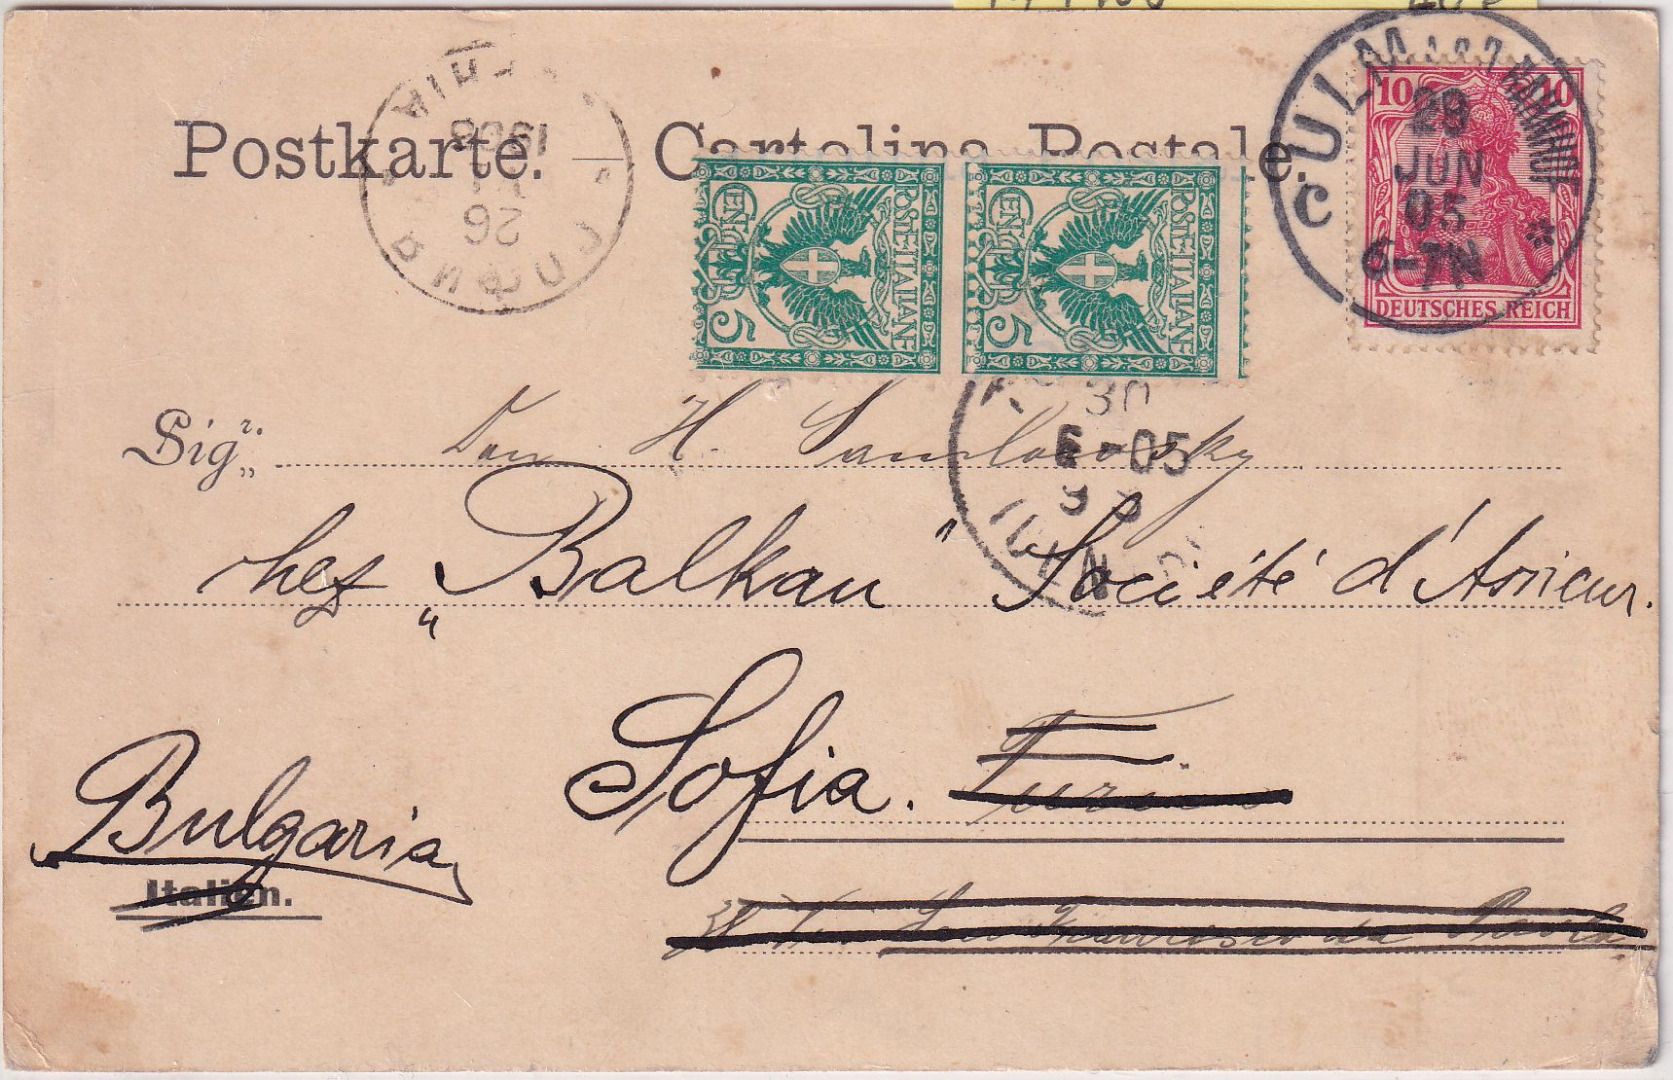 Postkarte. — Cartolina Postale.
ULM BAHNHOF
29
JUN
05
6-7N
C
10 10
DEUTSCHES REICH
POSTE ITALIANE
CENT. 5
POSTE ITALIANE
CENT. 5
26
1905
30
6-05
Sigr. Don H.
chez „Balkan" Société d'Assicur.
Sofia. Turin
Bulgaria
Italien.
San Francisco da Paola